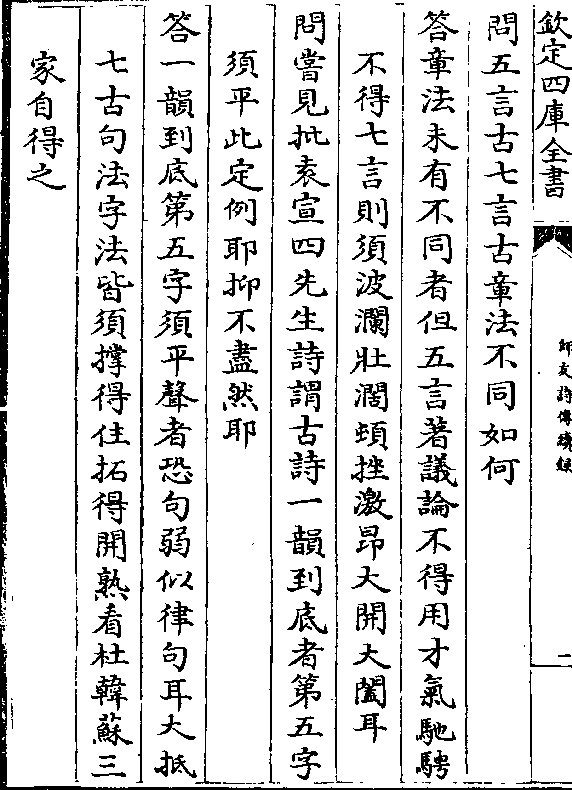 欽定四庫全書
師友詩傳續録
一
問五言古七言古章法不同如何
答章法未有不同者但五言著議論不得用才氣馳騁
不得七言則須波瀾壯濶頓挫激昻大開大闔耳
問嘗見批袁宣四先生詩謂古詩一韻到底者第五字
須平此定例耶抑不盡然耶
答一韻到底第五字須平聲者恐句弱似律句耳大抵
七古句法字法皆須撑得住拓得開熟看杜韓蘇三
家自得之